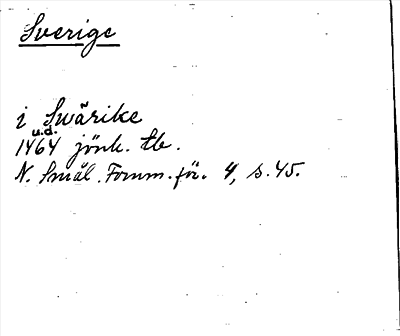 Sverige
i Swärike
u.d.
1464 jönk. tb.
N. Smål. Fornm. för. 4, s. 45.